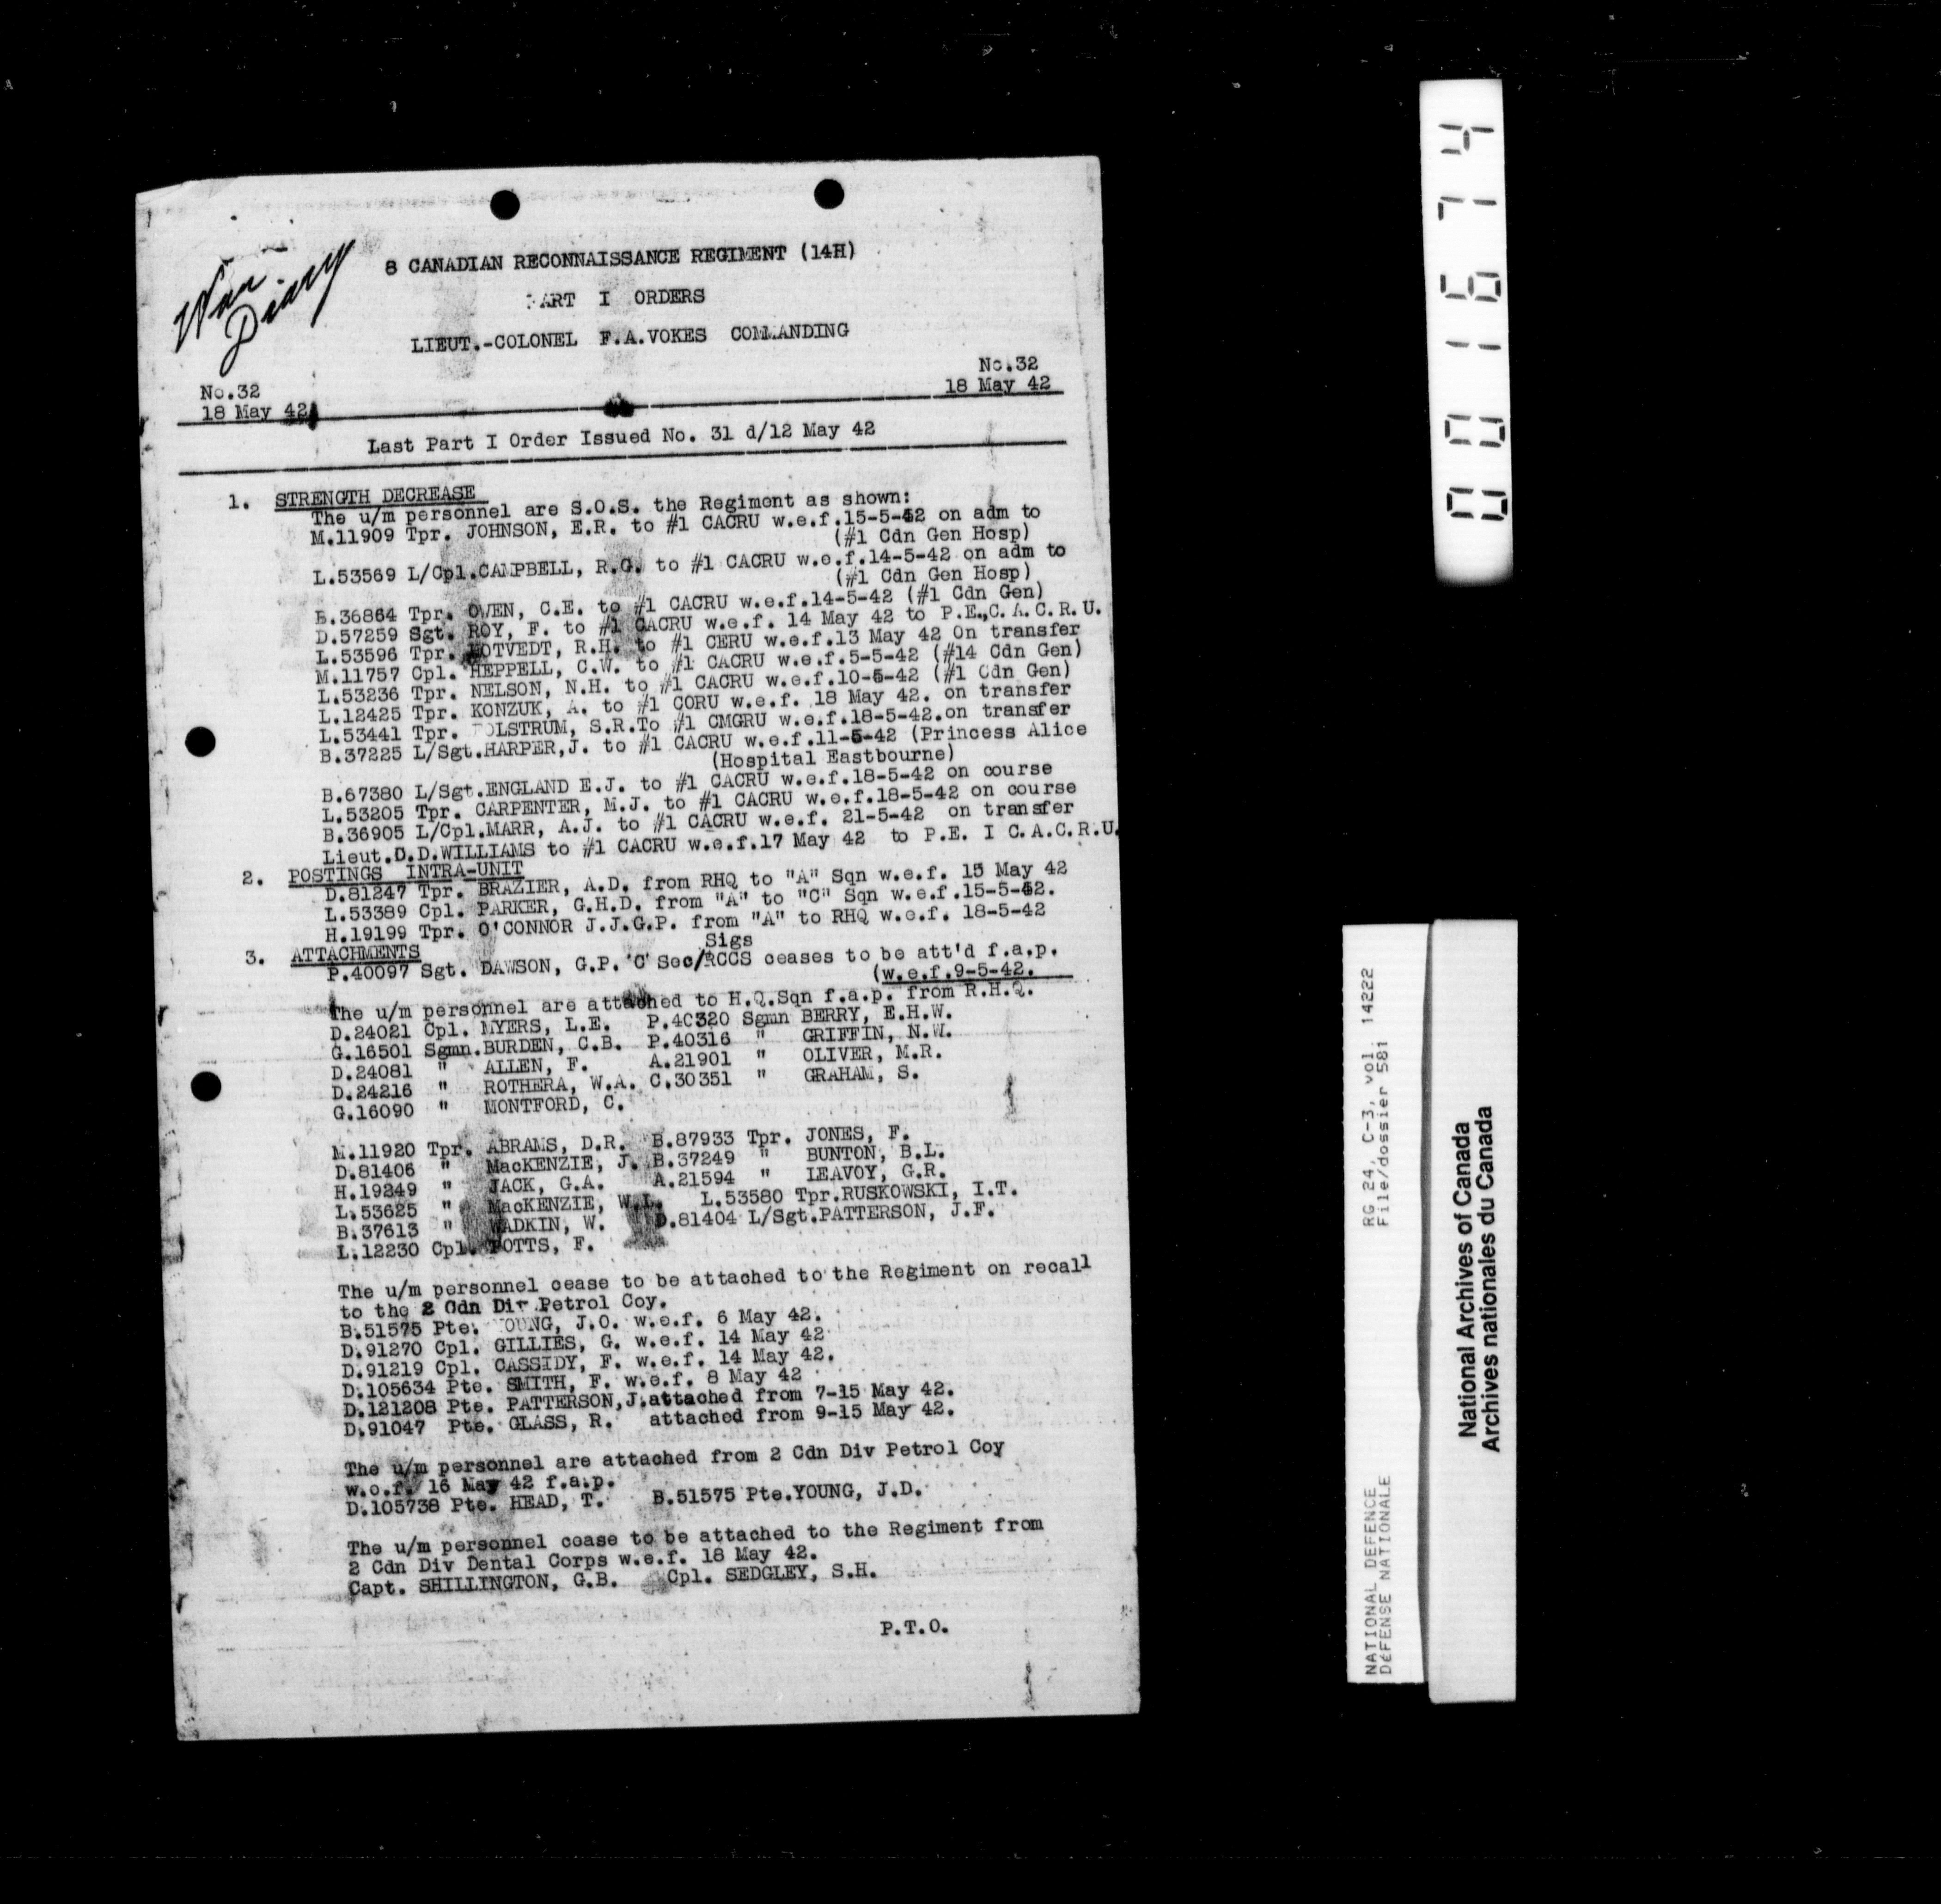 War
Diary
8 CANADIAN RECONNAISSANCE REGIMENT (14H)
PART I ORDERS
LIEUT.-COLONEL F.A.VOKES COMMANDING
No.32
18 May 42
No.32
18 May 42
Last Part I Order Issued No. 31 d/12 May 42
1. STRENGTH DECREASE
The u/m personnel are S.O.S. the Regiment as shown:
M.11909 Tpr. JOHNSON, E.R. to #1 CACRU w.e.f.15-5-42 on adm to
(#1 Cdn Gen Hosp)
L.53569 L/Cpl.CAMPBELL, R.G. to #1 CACRU w.e.f.14-5-42 on adm to
(#1 Cdn Gen Hosp)
B.36864 Tpr. OWEN, C.E. to #1 CACRU w.e.f.14-5-42 (#1 Cdn Gen)
D.57259 Sgt. ROY, F. to #1 CACRU w.e.f. 14 May 42 to P.E.,C.A.C.R.U.
L.53596 Tpr. R.H. to #1 CERU w.e.f.13 May 42 On transfer
M.11757 Cpl. HEPPELL, C.W. to #1 CACRU w.e.f.5-5-42 (#14 Cdn Gen)
L.53236 Tpr. NELSON, N.H. to #1 CACRU w.e.f.10-5-42 (#1 Cdn Gen)
L.12425 Tpr. KONZUK, A. to #1 CORU w.e.f. 18 May 42. on transfer
L.53441 Tpr. S.R.To #1 CMGRU w.e.f.18-5-42.on transfer
B.37225 L/Sgt.HARPER,J. to #1 CACRU w.e.f.11-5-42 (Princess Alice
(Hospital Eastbourne)
B.67380 L/Sgt.ENGLAND E.J. to #1 CACRU w.e.f.18-5-42 on course
L.53205 Tpr. CARPENTER, M.J. to #1 CACRU w.e.f.18-5-42 on course
B.36905 L/Cpl.MARR, A.J. to #1 CACRU w.e.f. 21-5-42 on transfer
Lieut.D.D.WILLIAMS to #1 CACRU w.e.f.17 May 42 to P.E. I C.A.C.R.U.
2. POSTINGS INTRA-UNIT
D.81247 Tpr. BRAZIER, A.D. from RHQ to "A" Sqn w.e.f. 15 May 42
L.53389 Cpl. PARKER, G.H.D. from "A" to "C" Sqn w.e.f.15-5-42.
H.19199 Tpr. O'CONNOR J.J.G.P. from "A" to RHQ w.e.f. 18-5-42
3. ATTACHMENTS
Sigs
P.40097 Sgt. DAWSON, G.P. 'C' Sec/RCCS ceases to be att'd f.a.p.
(w.e.f.9-5-42.
The u/m personnel are attached to H.Q.Sqn f.a.p. from R.H.Q.
D.24021 Cpl. MYERS, L.E. P.40320 Sgmn BERRY, E.H.W.
G.16501 Sgmn.BURDEN, C.B. P.40316 " GRIFFIN, N.W.
D.24081 " ALLEN, F. A.21901 " OLIVER, M.R.
D.24216 " ROTHERA, W.A. C.30351 " GRAHAM, S.
G.16090 " MONTFORD, C.
M.11920 Tpr. ABRAMS, D.R. B.87933 Tpr. JONES, F.
D.81406 " MacKENZIE, J. B.37249 " BUNTON, B.L.
H.19249 " JACK, G.A. A.21594 " LEAVOY, G.R.
L.53625 " MacKENZIE, W.L. L.53580 Tpr.RUSKOWSKI, I.T.
B.37613 " WADKIN, W. D.81404 L/Sgt.PATTERSON, J.F.
L.12230 Cpl. POTTS, F.
The u/m personnel cease to be attached to the Regiment on recall
to the 2 Cdn Div Petrol Coy.
B.51575 Pte. YOUNG, J.O. w.e.f. 6 May 42.
D.91270 Cpl. GILLIES, G. w.e.f. 14 May 42
D.91219 Cpl. CASSIDY, F. w.e.f. 14 May 42.
D.105634 Pte. SMITH, F. w.e.f. 8 May 42
D.121208 Pte. PATTERSON,J.attached from 7-15 May 42.
D.91047 Pte. GLASS, R. attached from 9-15 May 42.
The u/m personnel are attached from 2 Cdn Div Petrol Coy
w.e.f. 16 May 42 f.a.p.
D.105738 Pte. HEAD, T. B.51575 Pte.YOUNG, J.D.
The u/m personnel cease to be attached to the Regiment from
2 Cdn Div Dental Corps w.e.f. 18 May 42.
Capt. SHILLINGTON, G.B. Cpl. SEDGLEY, S.H.
P.T.O.
001674
NATIONAL DEFENCE RG 24, C-3, vol. 14222
DÉFENSE NATIONALE File/dossier 581
National Archives of Canada
Archives nationales du Canada